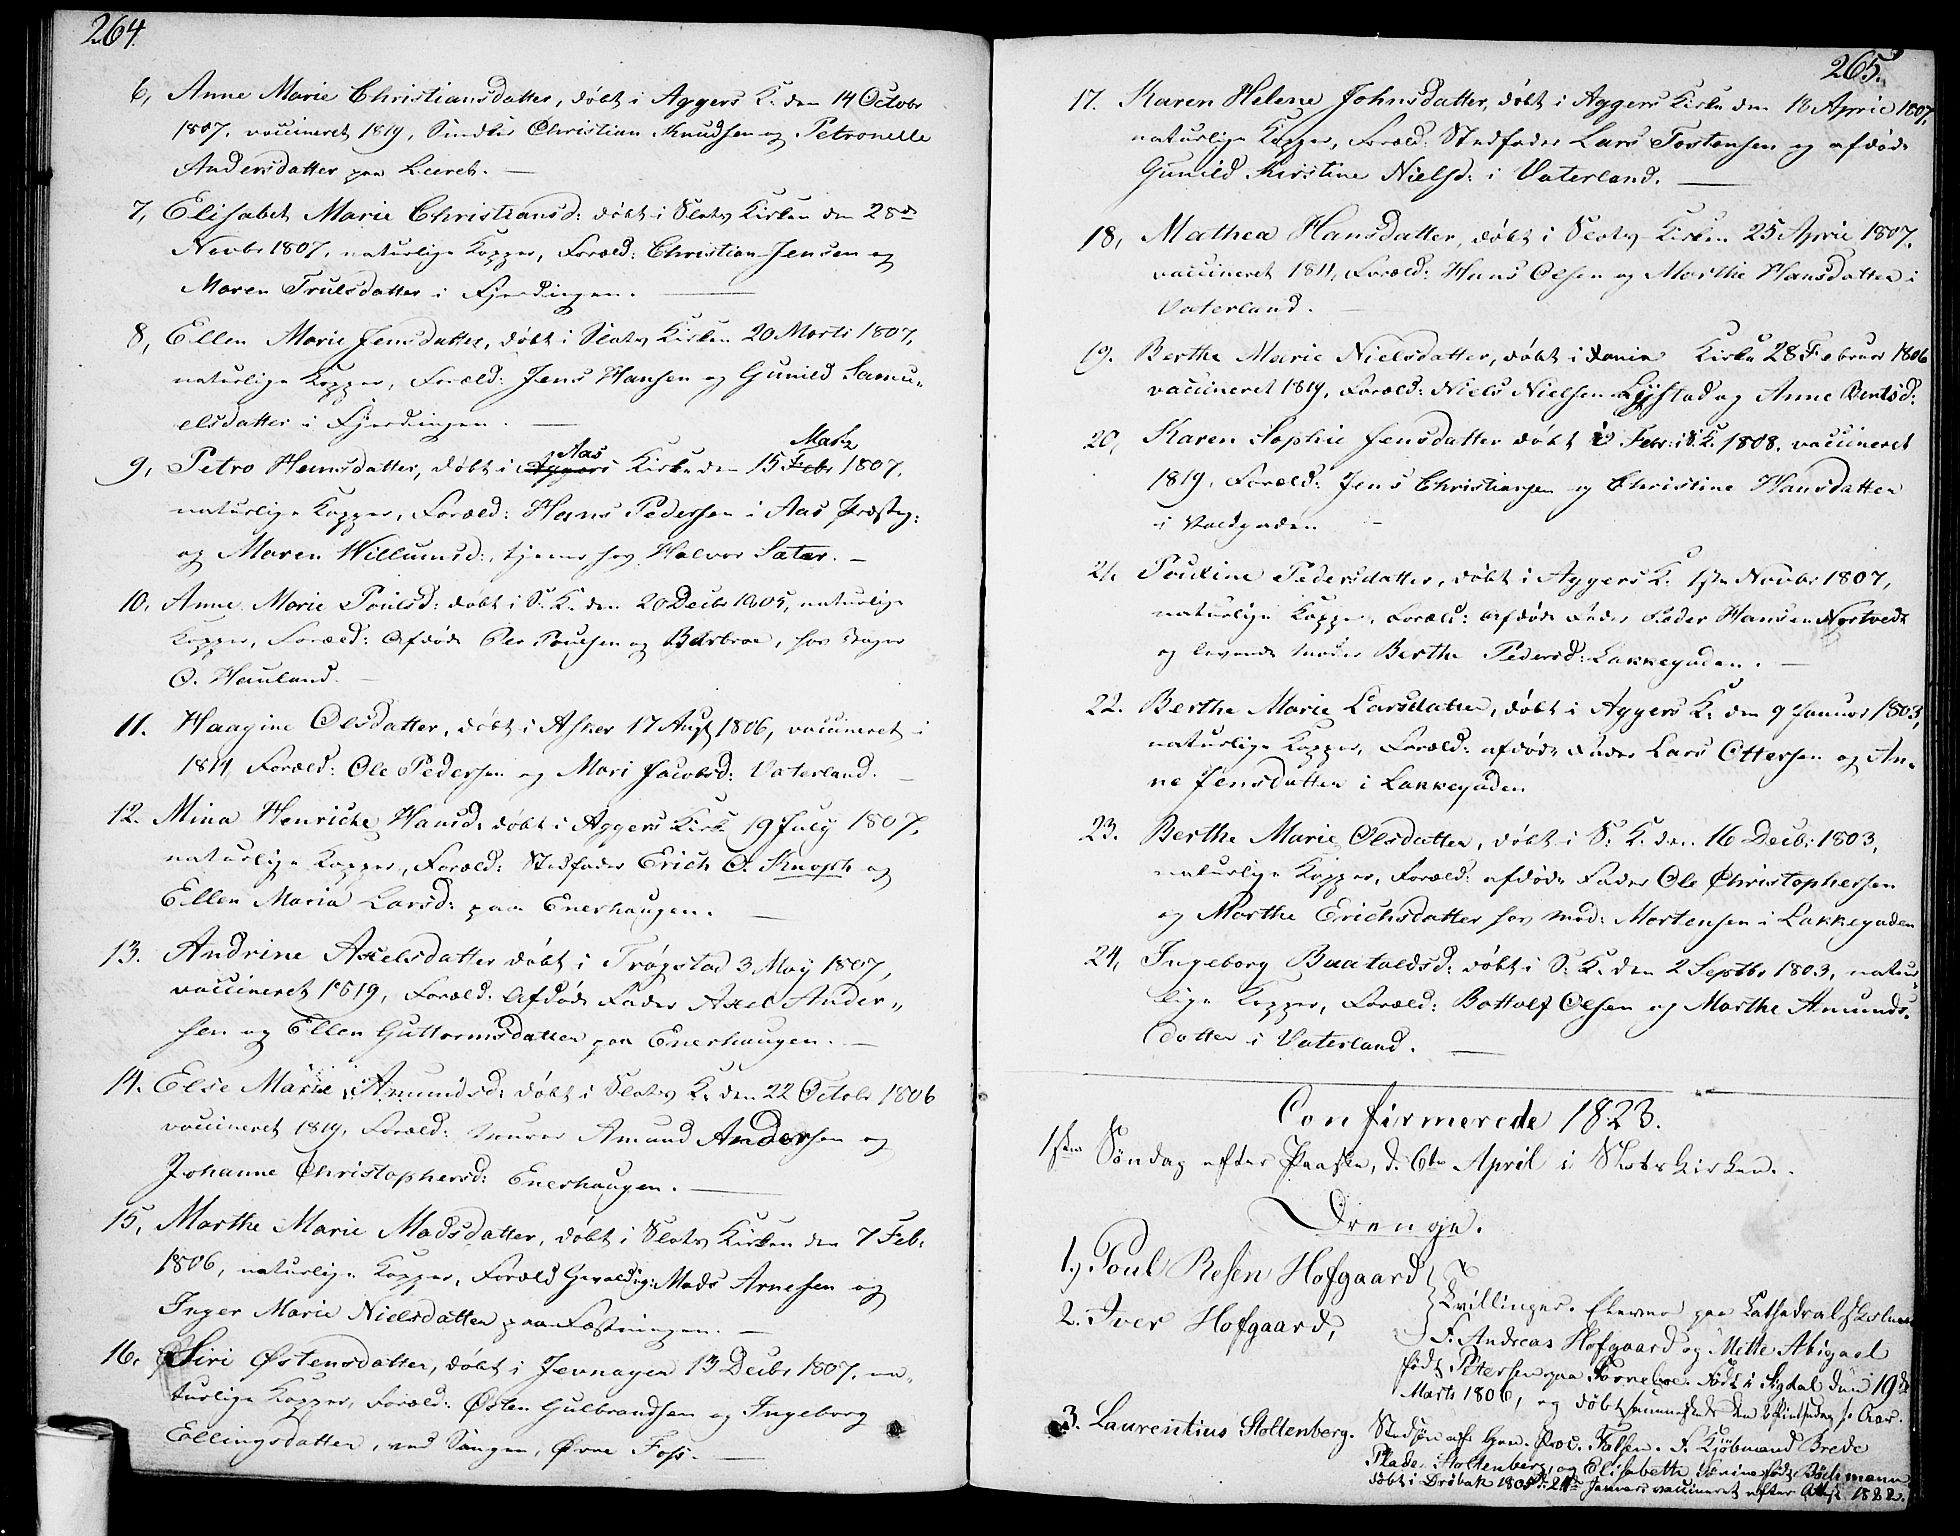 264.
6, Anne Marie Christiansdatter, döbt i Aggers K. den 14 Octobr
1807. vaccineret 1819, Christian Knudsen og Petronelle
Andersdatter paa Leeret. —
7, Elisabet Marie Christiansd: döbt i Slots Kirken den 28de
Novbr 1807, naturlige Kopper, Foræld: Christian Jensen og
Maren Trulsdatter i Fjerdingen. —
8, Ellen Marie Jensdatter, döbt i Slots Kirken 20 Marts 1807,
naturlige Kopper, Foræld: Jens Hansen og Gunild Samu„
elsdatter i Fjerdingen. —
9, Petro Hansdatter, döbt i Aggers Aas Kirke den 15 Febr Marts 1807,
naturlige Kopper, Foræld: Hans Pedersen i Aas Præsteg:
og Maren Willumsd:, tjener hos Halvor Sater. —
10. Anne Marie Poulsd: döbt i S. K. den 20 Decbr 1805, naturlige
Kopper, Foræld: afdöde Per Poulsen og Bertroe, hos
O. Hauland. —
11. Haagine Olsdatter, döbt i Asker 17 Augt 1806, vaccineret i
1811, Foræld: Ole Pedersen og Mari Jacobsd: Vaterland. —
12. Mina Henriche Hansd: döbt i Aggers Kirke 19 July 1807,
naturlige Kopper, Foræld: Stedfader Erich O. Knoph og
Ellen Maria Larsd: paa Enerhaugen. —
13. Andrine Axelsdatter döbt i Trögstad 3 May 1807,
vaccineret 1819, Foræld: Afdöde Fader Axel Ander„
sen og Ellen Guttormsdatter paa Enerhaugen. —
14. Else Marie Amundsd: döbt i Slots K. den 22 Octobr 1806
vaccineret 1819, Foræld: Murer Amund Andersen og
Johanne Christophersd: Enerhaugen. —
15, Marthe Marie Madsdatter, döbt i Slots Kirken den 7 Feb:
1806, naturlige Kopper, Foræld Gevaldig: Mads Arnesen og
Inger Marie Nielsdatter paa Fæstningen. —
16. Siri Østensdatter, döbt i Jevnager 13 Decbr 1807. na„
turlige Kopper, Foræld: Østen Gulbrandsen og Ingeborg
Ellingsdatter, ved Saugen, Övre Foss. —
265.
17. Karen Helene Johnsdatter, döbt i Aggers Kirke den 18 April 1807,
naturlige Kopper, Foræld: Stedfader Lars Tostensen og afdöde
Gunild Kirstine Nielsd: i Vaterland. —
18, Mathea Hansdatter, döbt i Slots Kirken 25 April 1807.
vaccineret 1811, Foræld: Hans Olsen og Marthe Hansdatter i
Vaterland. —
19. Berthe Marie Nielsdatter, döbt i Kirke 28 Februar 1806
vaccineret 1819, Foræld: Niels Nielsen og Anne Bentsd:
20, Karen Sophie Jensdatter döbt Febr: i S. K. 1808. vaccineret
1819, Foræld: Jens Christiansen og Christine Hansdatter
i Voldgaden —
21. Pouline Pedersdatter, döbt i Aggers K. 1ste Novbr 1807,
naturlige Kopper, Foræld: afdöde Fader Peder Hansen Nortvedt
og levende Moder Berthe Pedersd: Lakkegaden. —
22. Berthe Marie Larsdatter, döbt i Aggers K. den 9 Januar 1803,
naturlige Kopper, Foræld: afdöde Fader Lars Ottersen og An„
ne Jensdatter i Lakkegaden
23. Berthe Marie Olsdatter, döbt i S. K. den 16 Decbr 1803,
naturlige Kopper, Foræld: afdöde Fader Ole Christophersen
og Marthe Erichsdatter hos Mad: Mortensen i Lakkegaden
24, Ingeborg Baataldsd: döbt i S. K. den 2 Septbr 1803, natur„
lige Kopper, Foræld: Bottolf Olsen og Marthe Amunds„
datter i Vaterland. —
Confirmerede 1823.
1ste Söndag efter Paaske, d. 6te April i Slotskirken.
Drenge.
1., Poul Resen Hofgaard
2. Iver Hofgaard,
Tvillinger. Elever paa Cathedral Skolen
F. Andreas Hofgaard og Mette Abigael
födt Petersen paa Forneboe. Födt i Sigdal den 19de
Marts 1806, og döbt sammesteds den 2 Pintsedag s. Aar.
3. Laurentius Stoltenberg. Stedsön af Gen. Proc. Falsen. F. Kjöbmand Brede
Plade Stoltenberg, og Elisabethe födt Böchmann
döbt i Dröbak 1805 d: 21de Januar vaccineret efter Att: 1822.